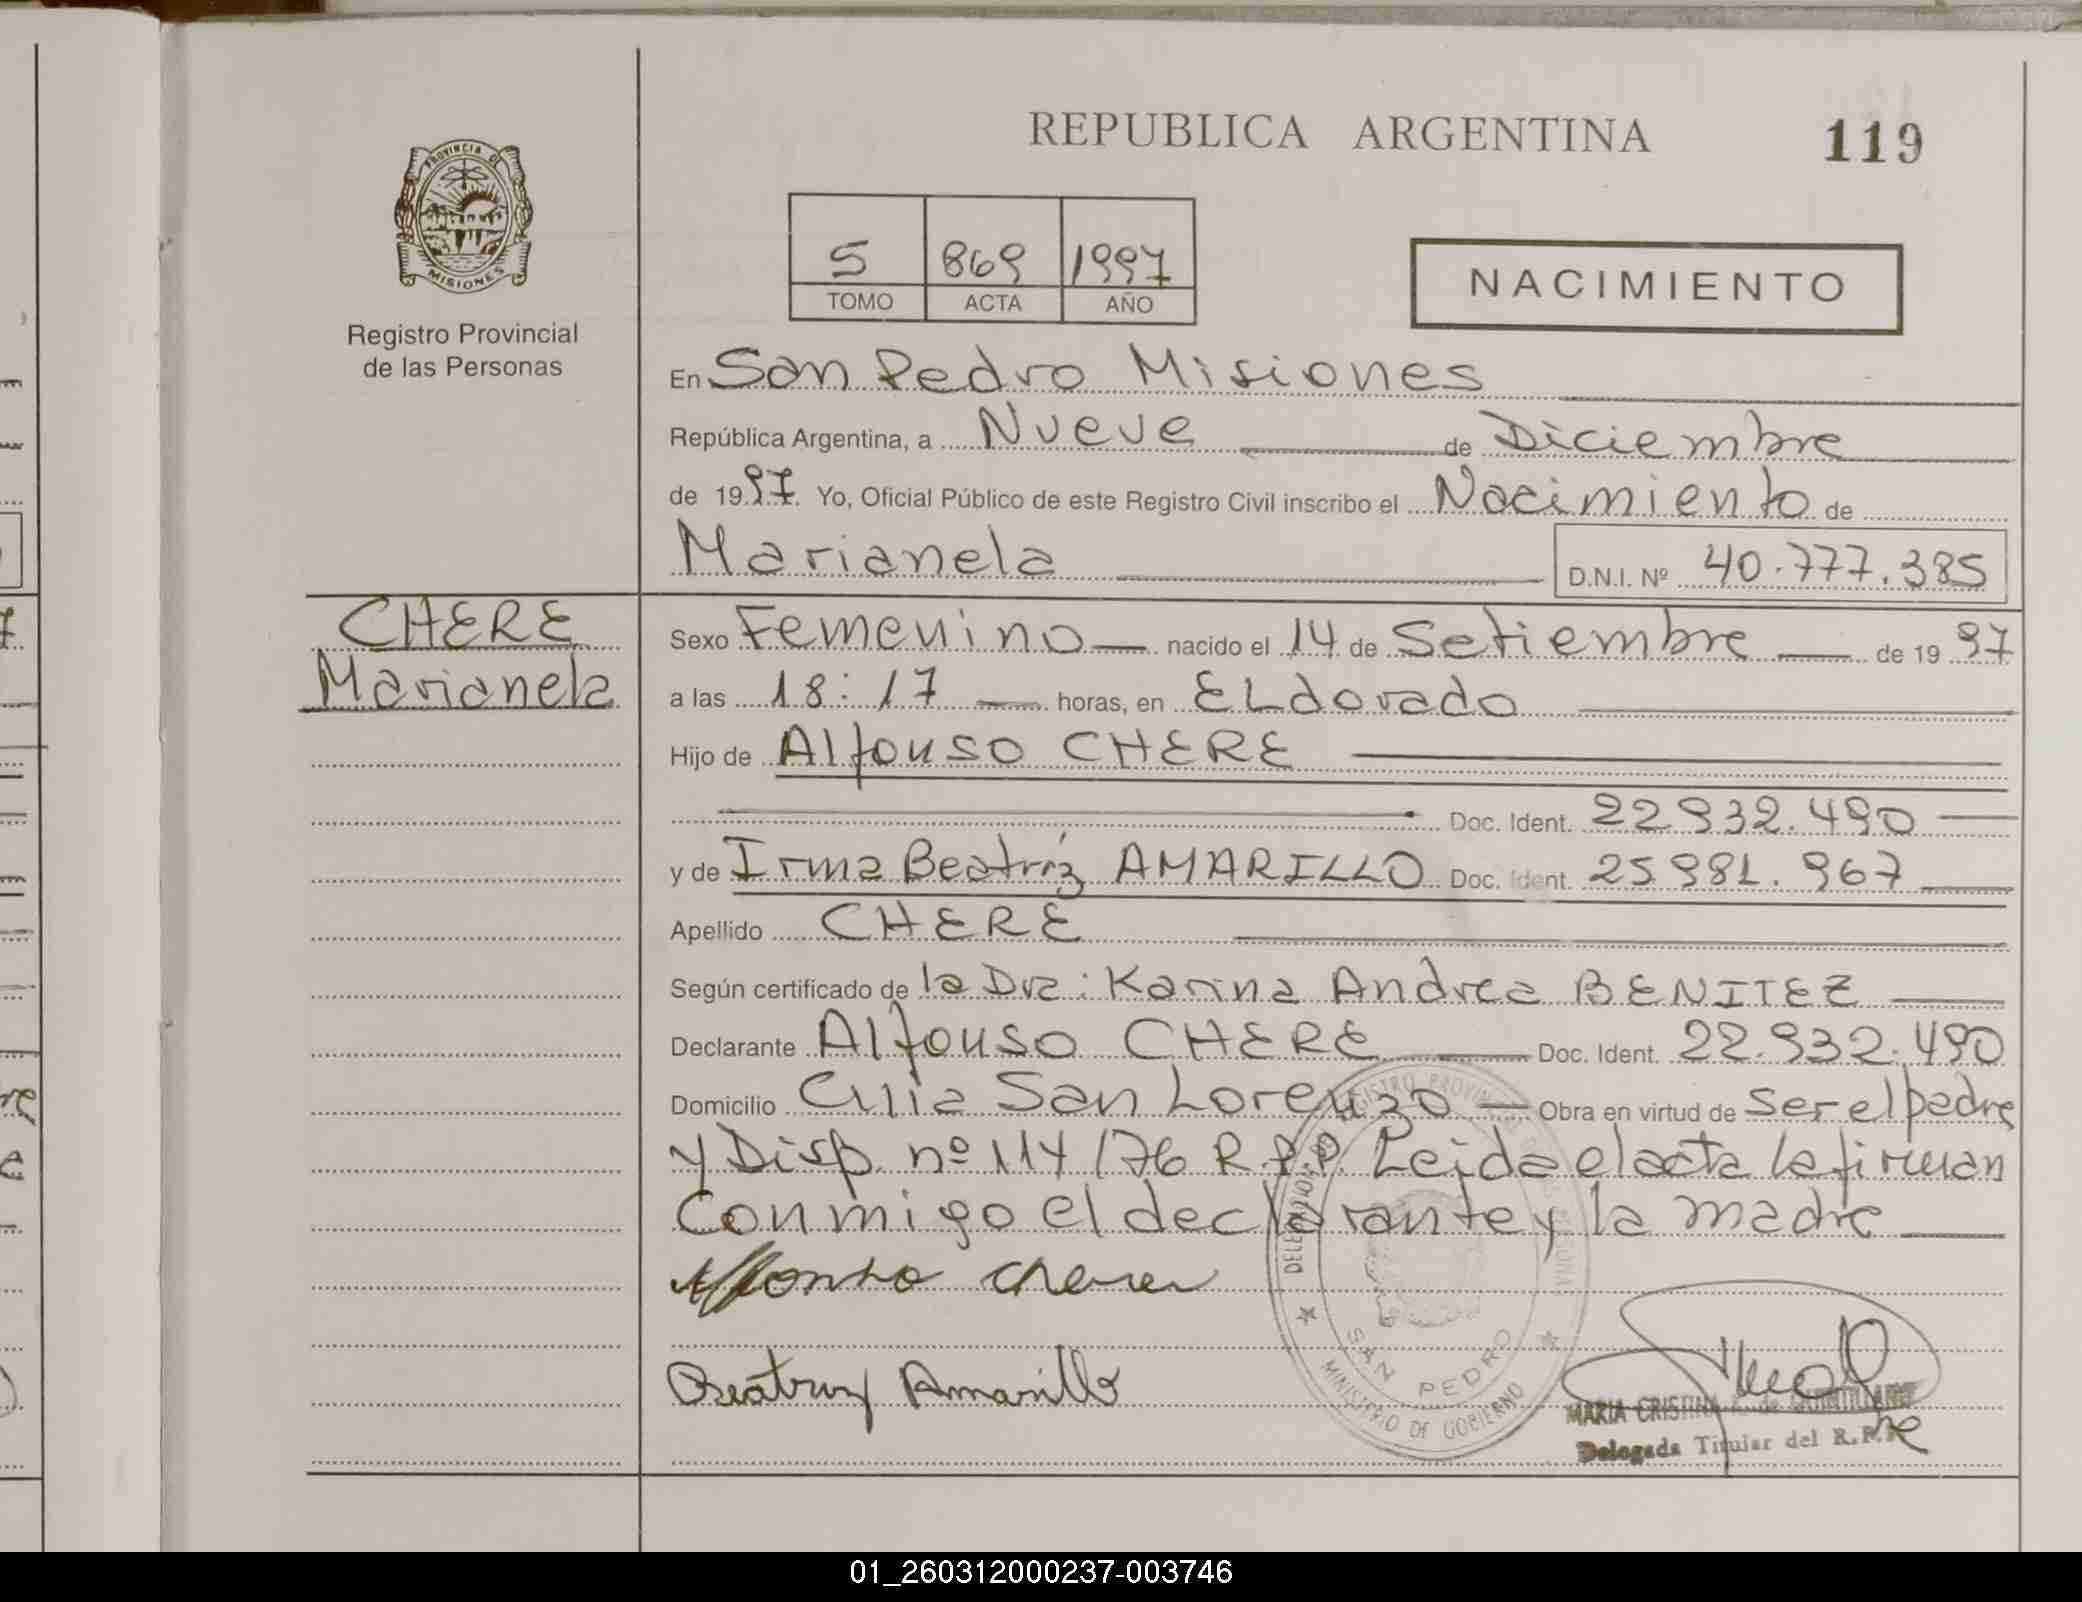 REPUBLICA ARGENTINA
119
PROVINCIA DE
MISIONES
Registro Provincial
de las Personas
5 869 1997
TOMO ACTA AÑO
NACIMIENTO
En San Pedro Misiones
República Argentina, a Nueve de Diciembre
de 1997. Yo, Oficial Público de este Registro Civil inscribo el Nacimiento de
Marianela D.N.I. Nº 40.777.385
CHERE
Marianela
Sexo Femenino nacido el 14 de Setiembre de 1997
a las 18:17 horas, en ELdorado
Hijo de Alfonso CHERE
Doc. Ident. 22 932.490
y de Irma Beatríz AMARILLO Doc. Ident. 25 981.967
Apellido CHERE
Según certificado de la Dra: Karina Andrea BENITEZ
Declarante Alfonso CHERE Doc. Ident. 22.932.490
Domicilio San Lorenzo Obra en virtud de ser el padre
y Disp. nº 114/76 R.P.P. Leida el acta la firman
Conmigo el declarante y la madre
Alfonso Cherer
Beatriz Amarillo
SAN PEDRO
MINISTERIO DE GOBIERNO
MARIA CRISTINA de
Delegada Titular del R.P.P.
01_260312000237-003746